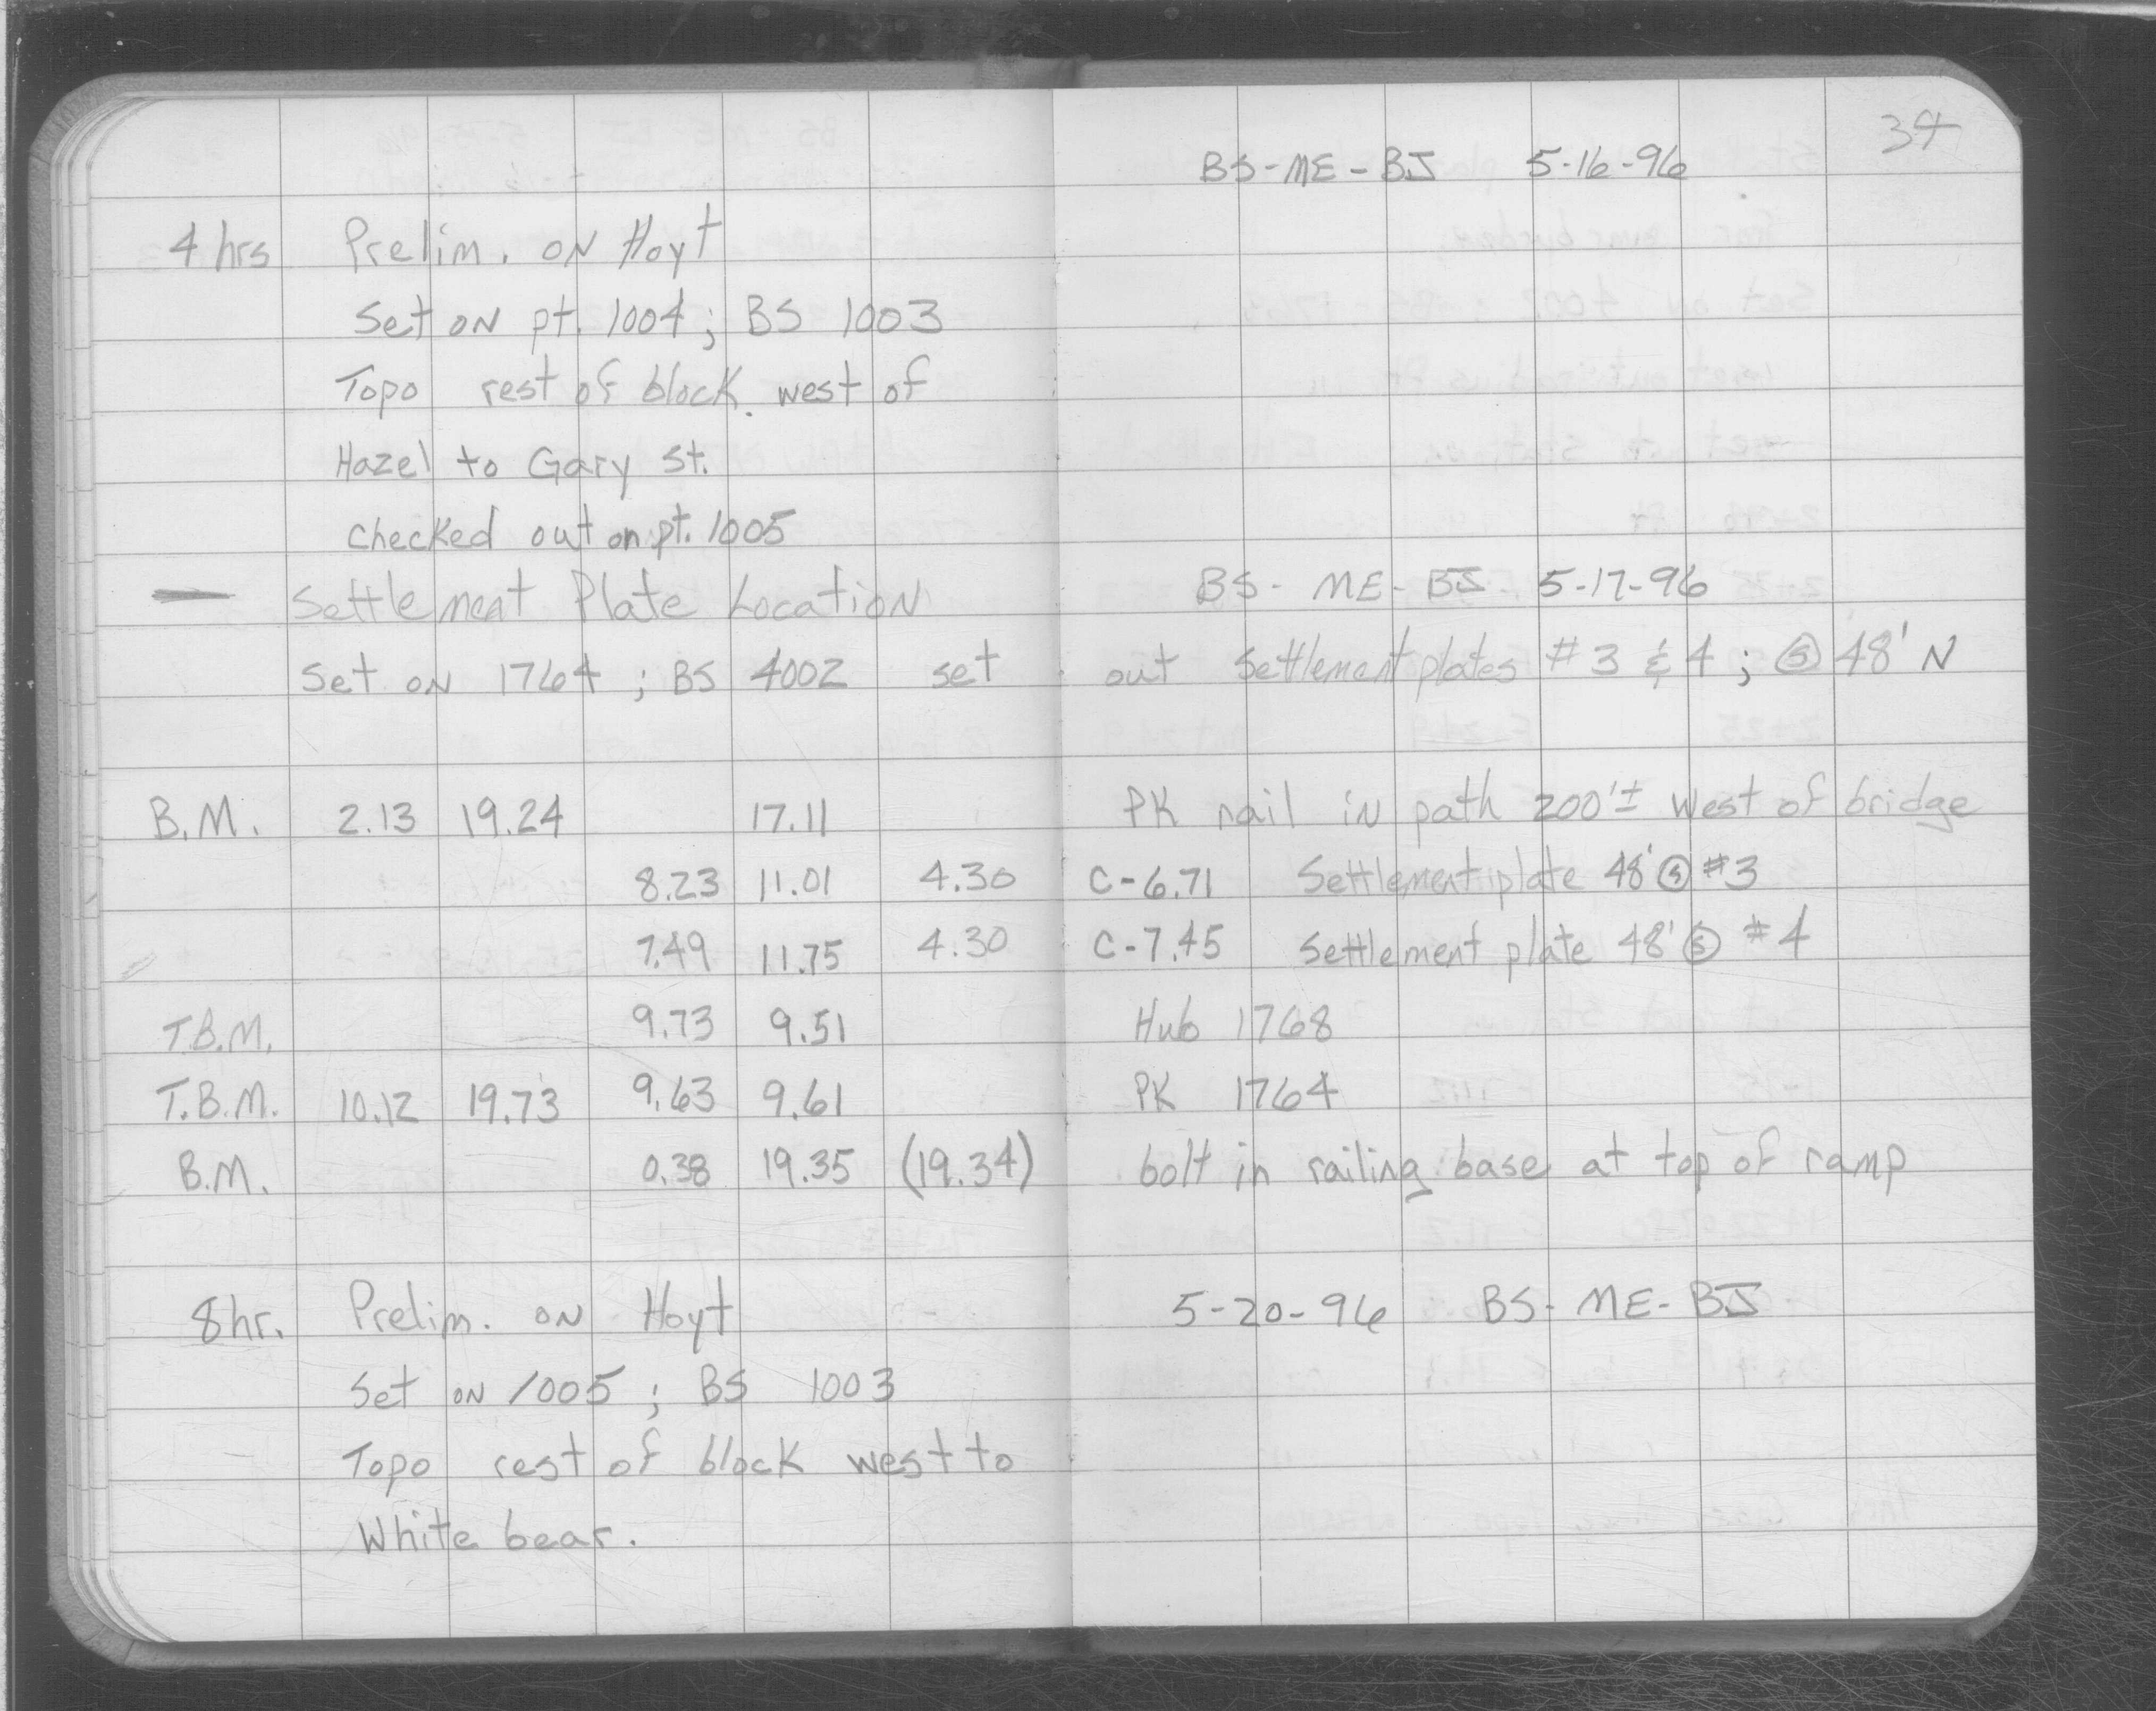 34
BS-ME-BJ 5-16-96
4 hrs Prelim. ON Hoyt
Set ON pt. 1004; BS 1003
Topo rest of block west of
Hazel to Gary St.
Checked out on pt. 1005
— Settlement Plate Location BS-ME-BJ 5-17-96
Set ON 1764; BS 4002 set out settlement plates #3 & 4; Ⓢ 48' N
B.M. 2.13 19.24 17.11 PK nail in path 200'± west of bridge
8.23 11.01 4.30 C-6.71 Settlement plate 48' Ⓢ #3
7.49 11.75 4.30 C-7.45 Settlement plate 48' Ⓢ #4
T.B.M. 9.73 9.51 Hub 1768
T.B.M. 10.12 19.73 9.63 9.61 PK 1764
B.M. 0.38 19.35 (19.34) bolt in railing base at top of ramp
8 hr. Prelim. ON Hoyt 5-20-96 BS-ME-BJ
Set ON 1005; BS 1003
Topo rest of block west to
White bear.